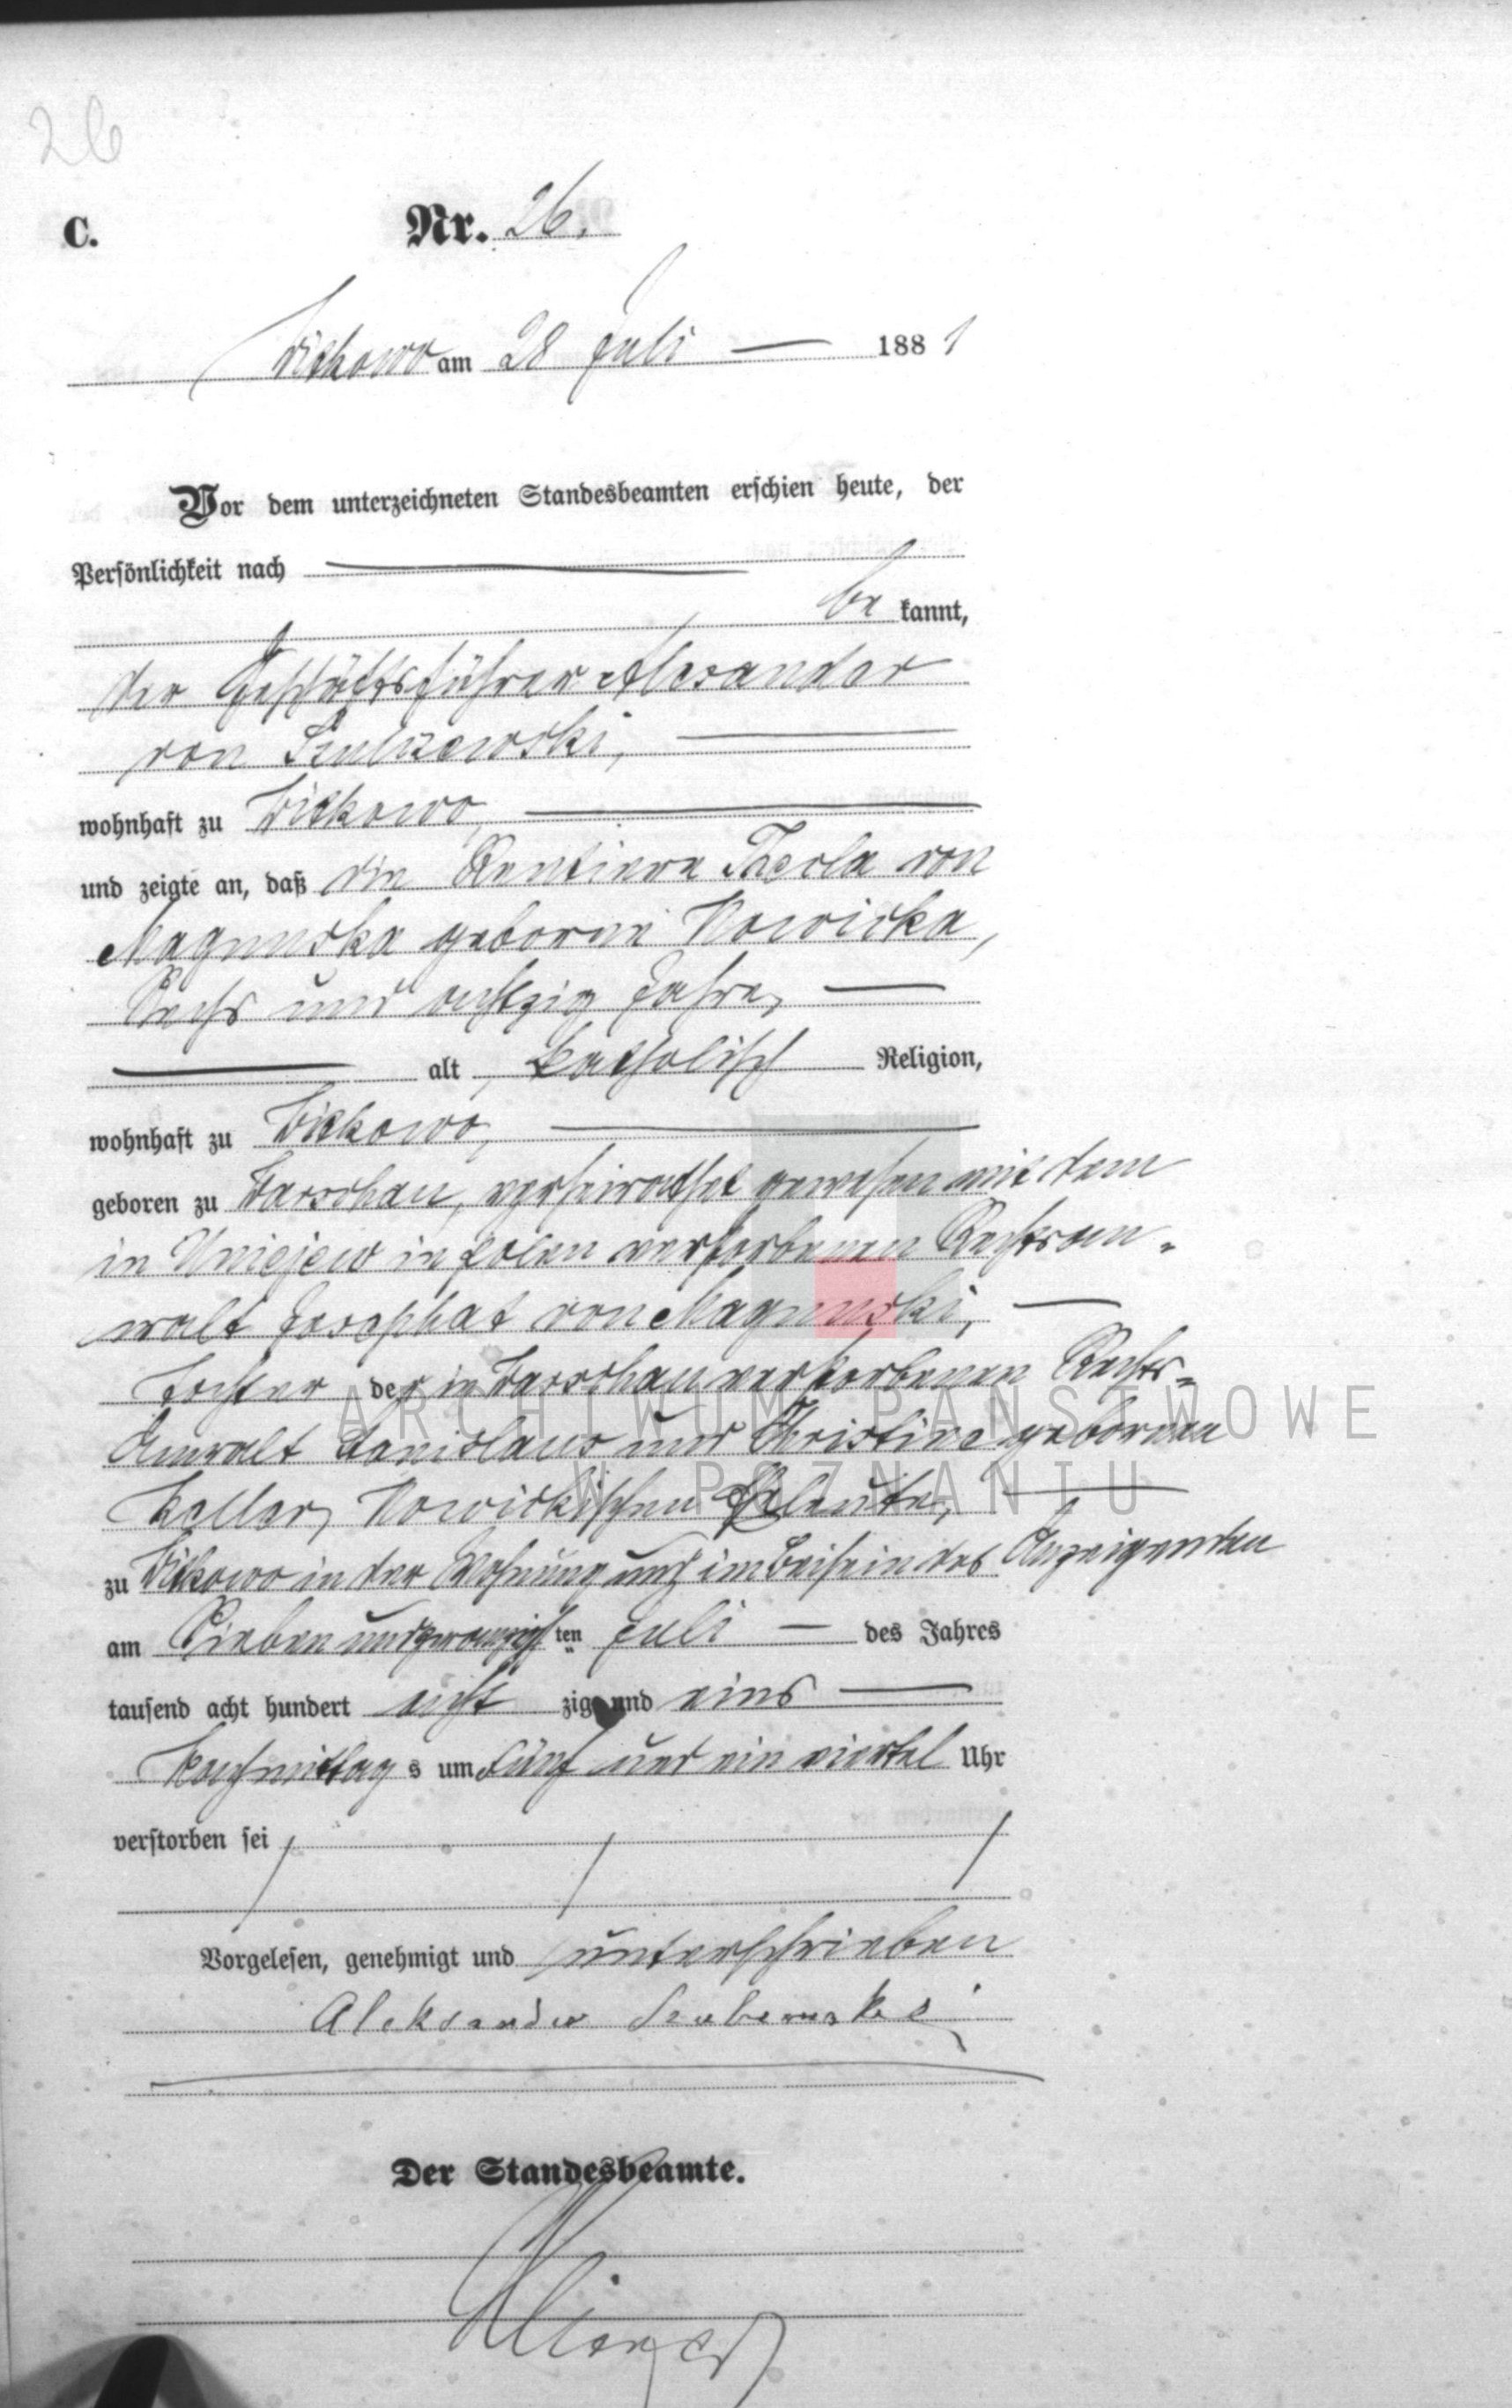 26
C. Nr. 26.
Witkowo am 28 Juli 1881
Vor dem unterzeichneten Standesbeamten erschien heute, der
Persönlichkeit nach
be kannt,
der Geschäftsführer Alexander
von
wohnhaft zu Witkowo,
und zeigte an, daß die Rentiere Thecla von
geborne Nowicka,
Sechs und achtzig Jahre,
alt, katholisch Religion,
wohnhaft zu Witkowo,
geboren zu Warschau, verheirathet gewesen mit dem
in Uniejew in Polen verstorbenen Rechtsan-
walt Josephat von
Tochter der in Warschau verstorbenen Rechts-
Anwalt Stanislaus und Christine gebornen
Keller, Nowickischen Eheleute,
zu Witkowo in der Wohnung und im Beisein des Anzeigenden
am Sieben und zwanzigsten Juli des Jahres
tausend acht hundert acht zig und eins
Nachmittag s um fünf und ein viertel Uhr
verstorben sei
Vorgelesen, genehmigt und unterschrieben
Aleksander
Der Standesbeamte.
ARCHIWUM PAŃSTWOWE
W POZNANIU